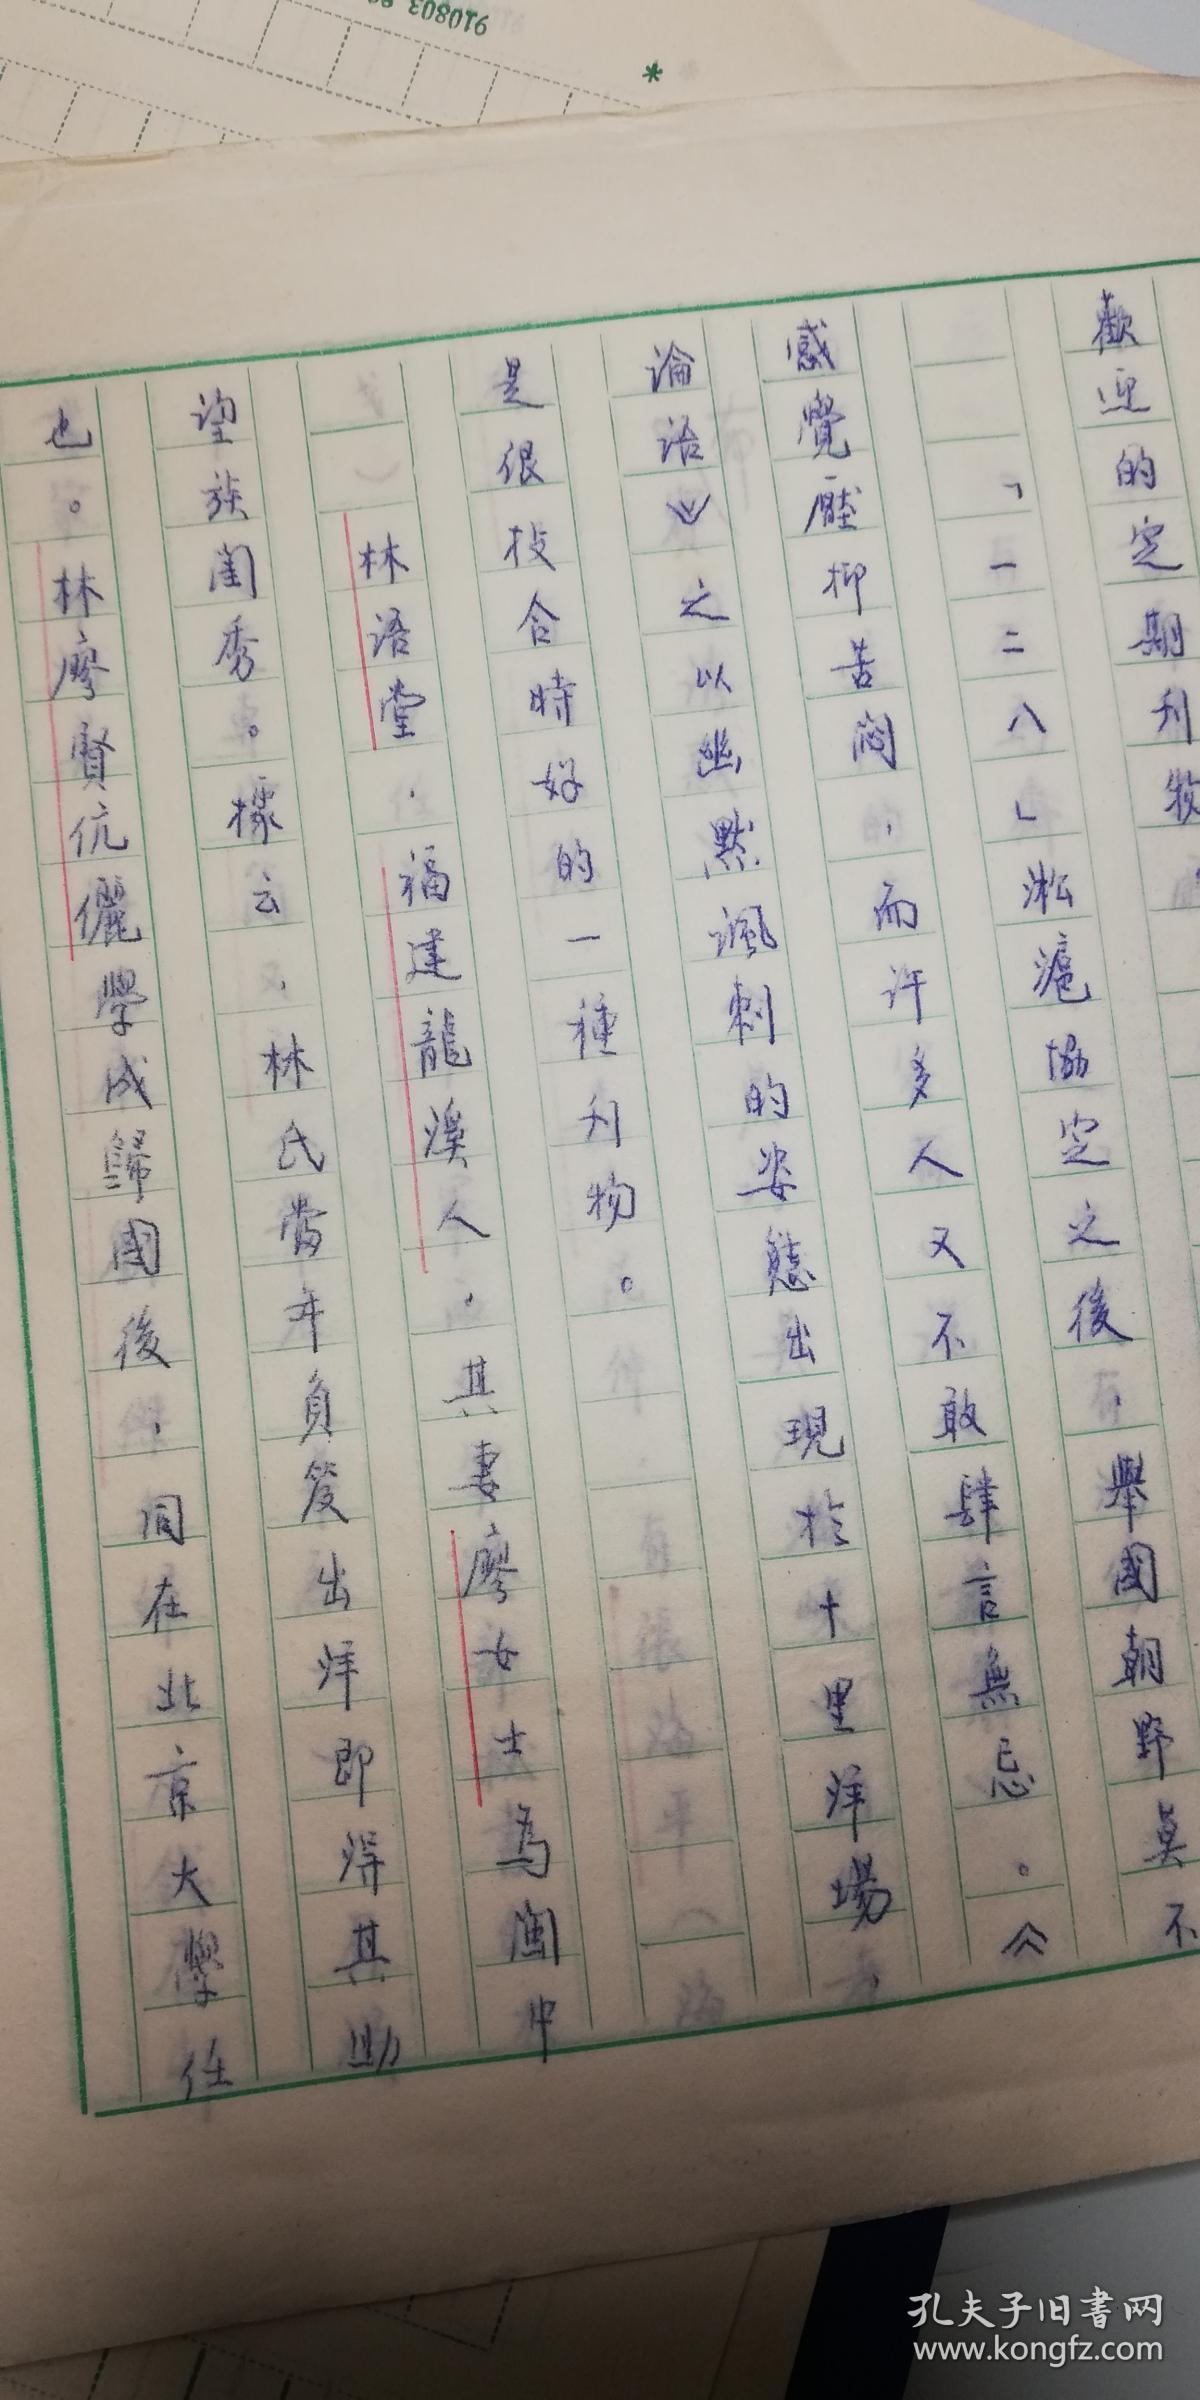 歡迎的定期刊物。
「一二八」淞滬協定之後，舉國朝野莫不
感覺壓抑苦悶，而許多人又不敢肆言無忌。《
論語》之以幽默諷刺的姿態出現於十里洋場，
是很投合時好的一種刊物。
林語堂，福建龍溪人，其妻廖女士為閩中
望族閨秀。據云，林氏當年負笈出洋即得其助
也。林廖賢伉儷學成歸國後，同在北京大學任
910803
*
孔夫子旧书网
www.kongfz.com